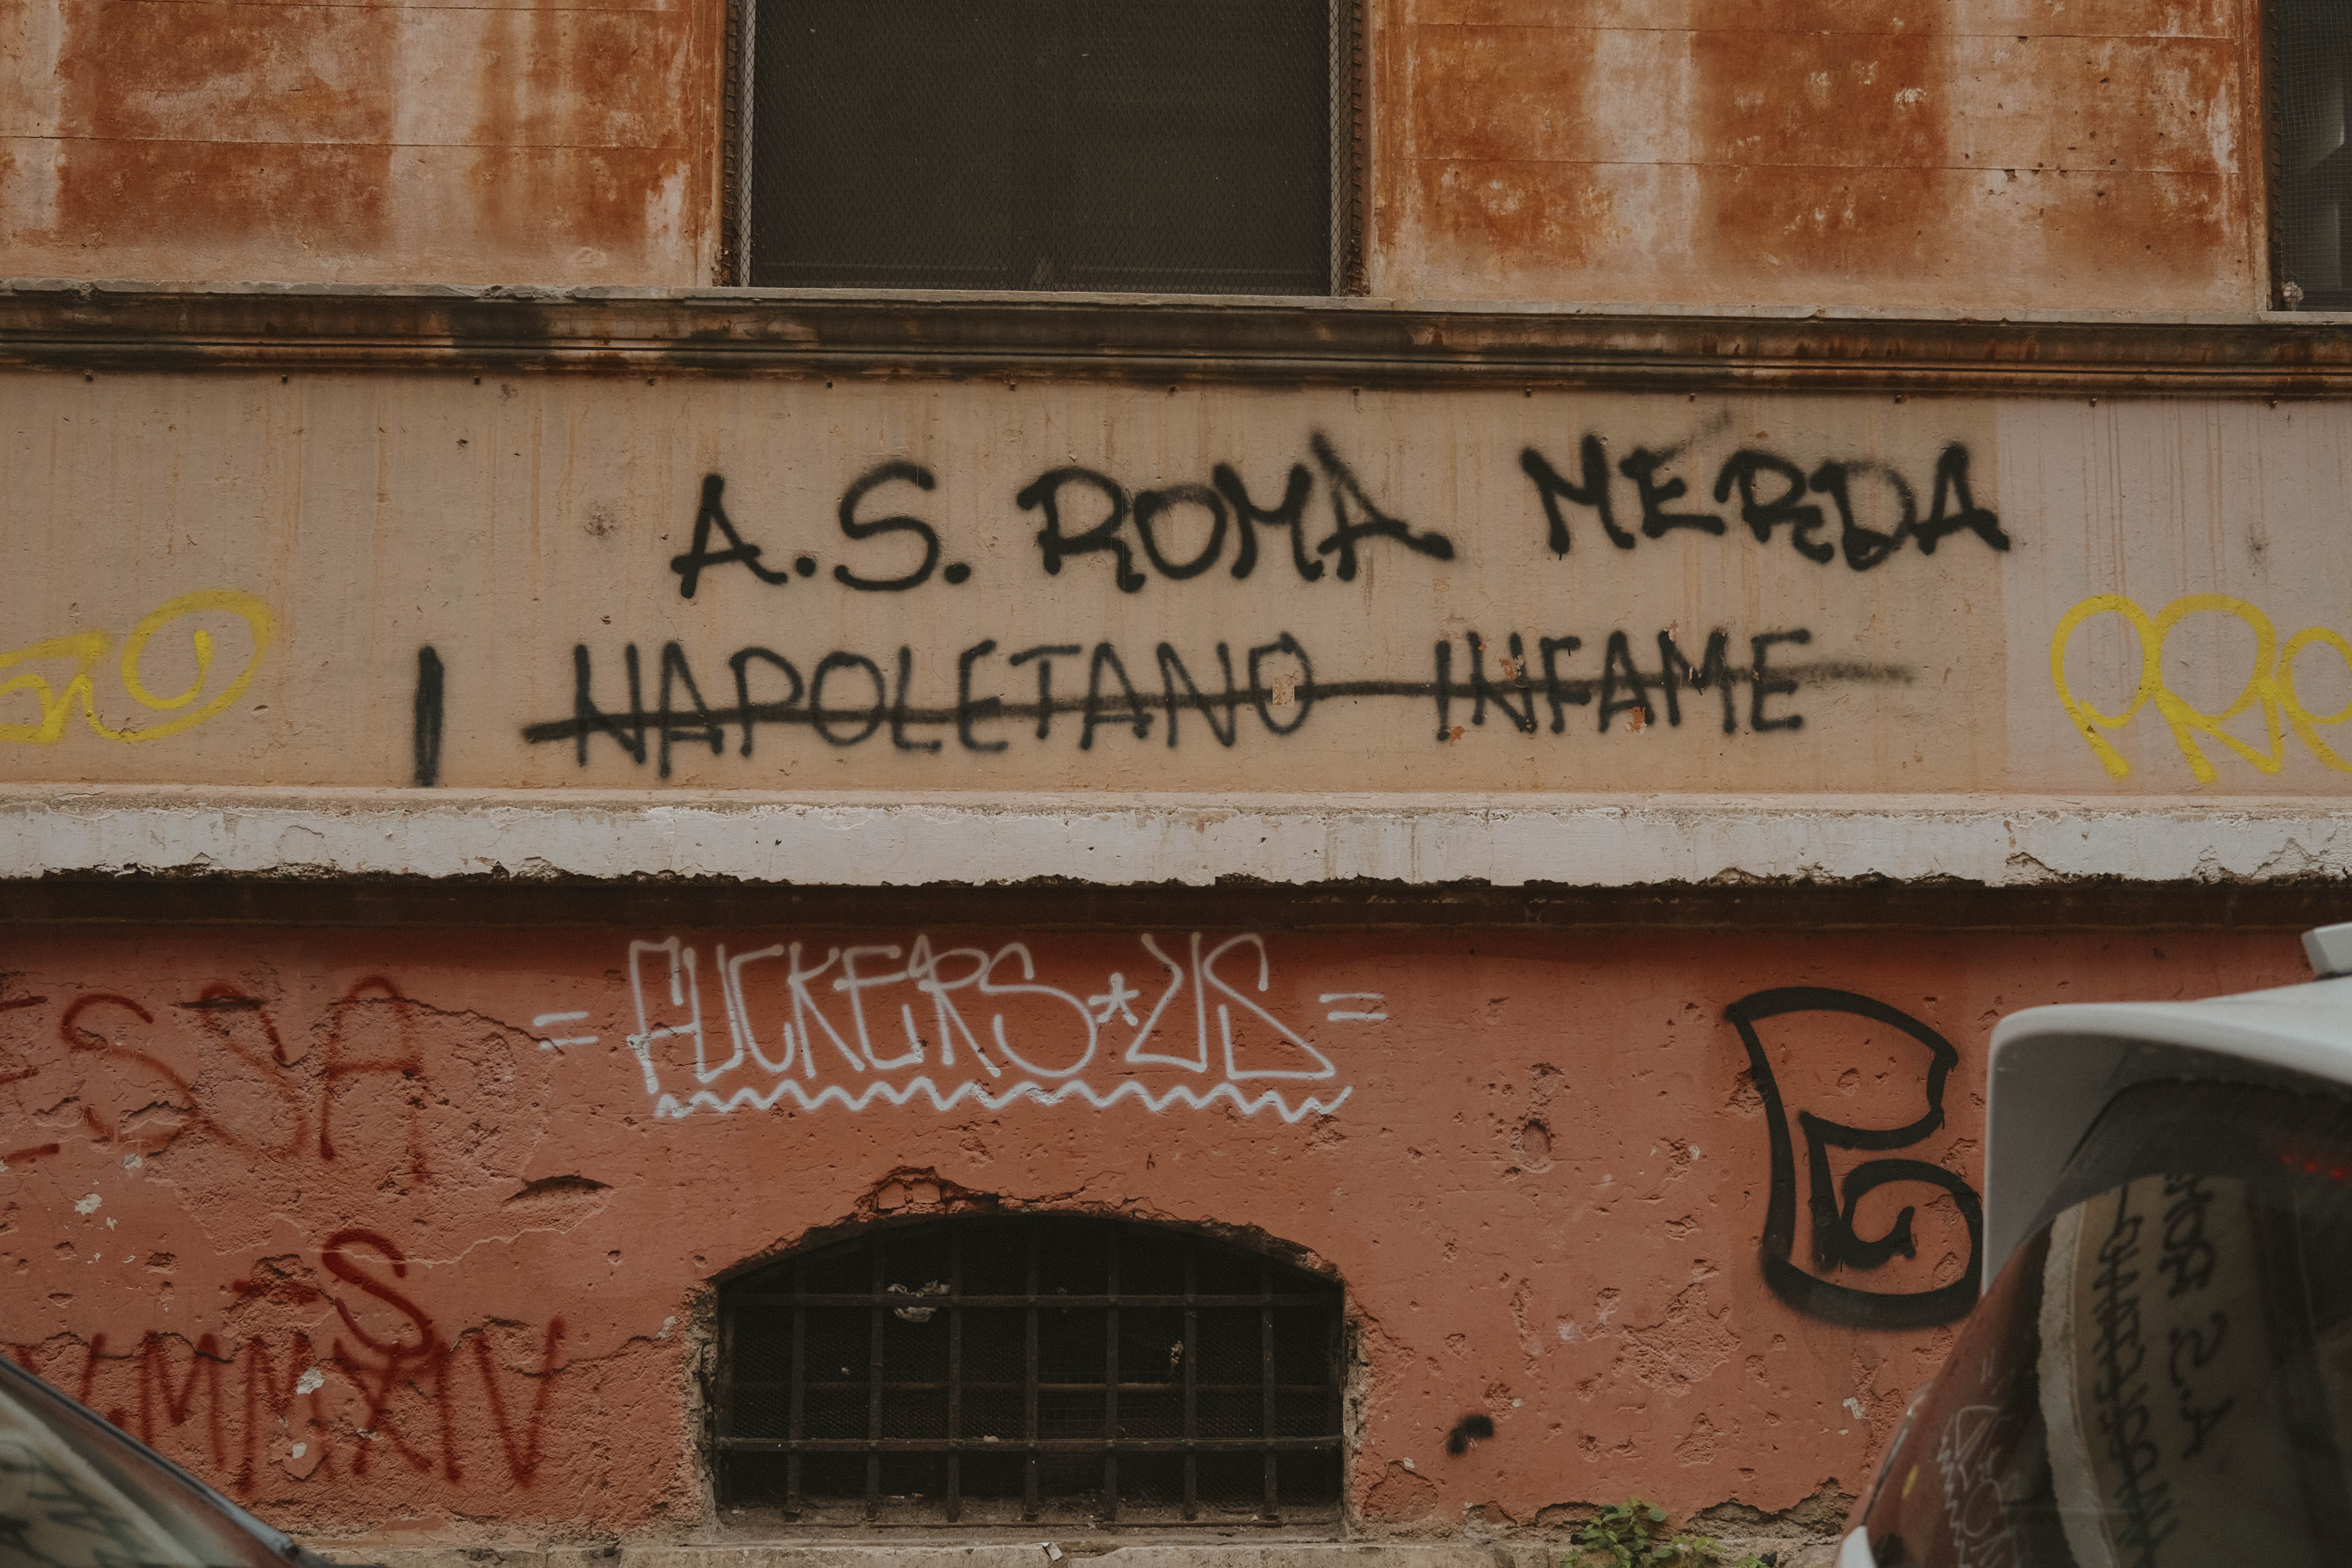 A.S. ROMA MERDA
NAPOLETANO INFAME
PRP
=FUCKERS*US=
S
MMXIV